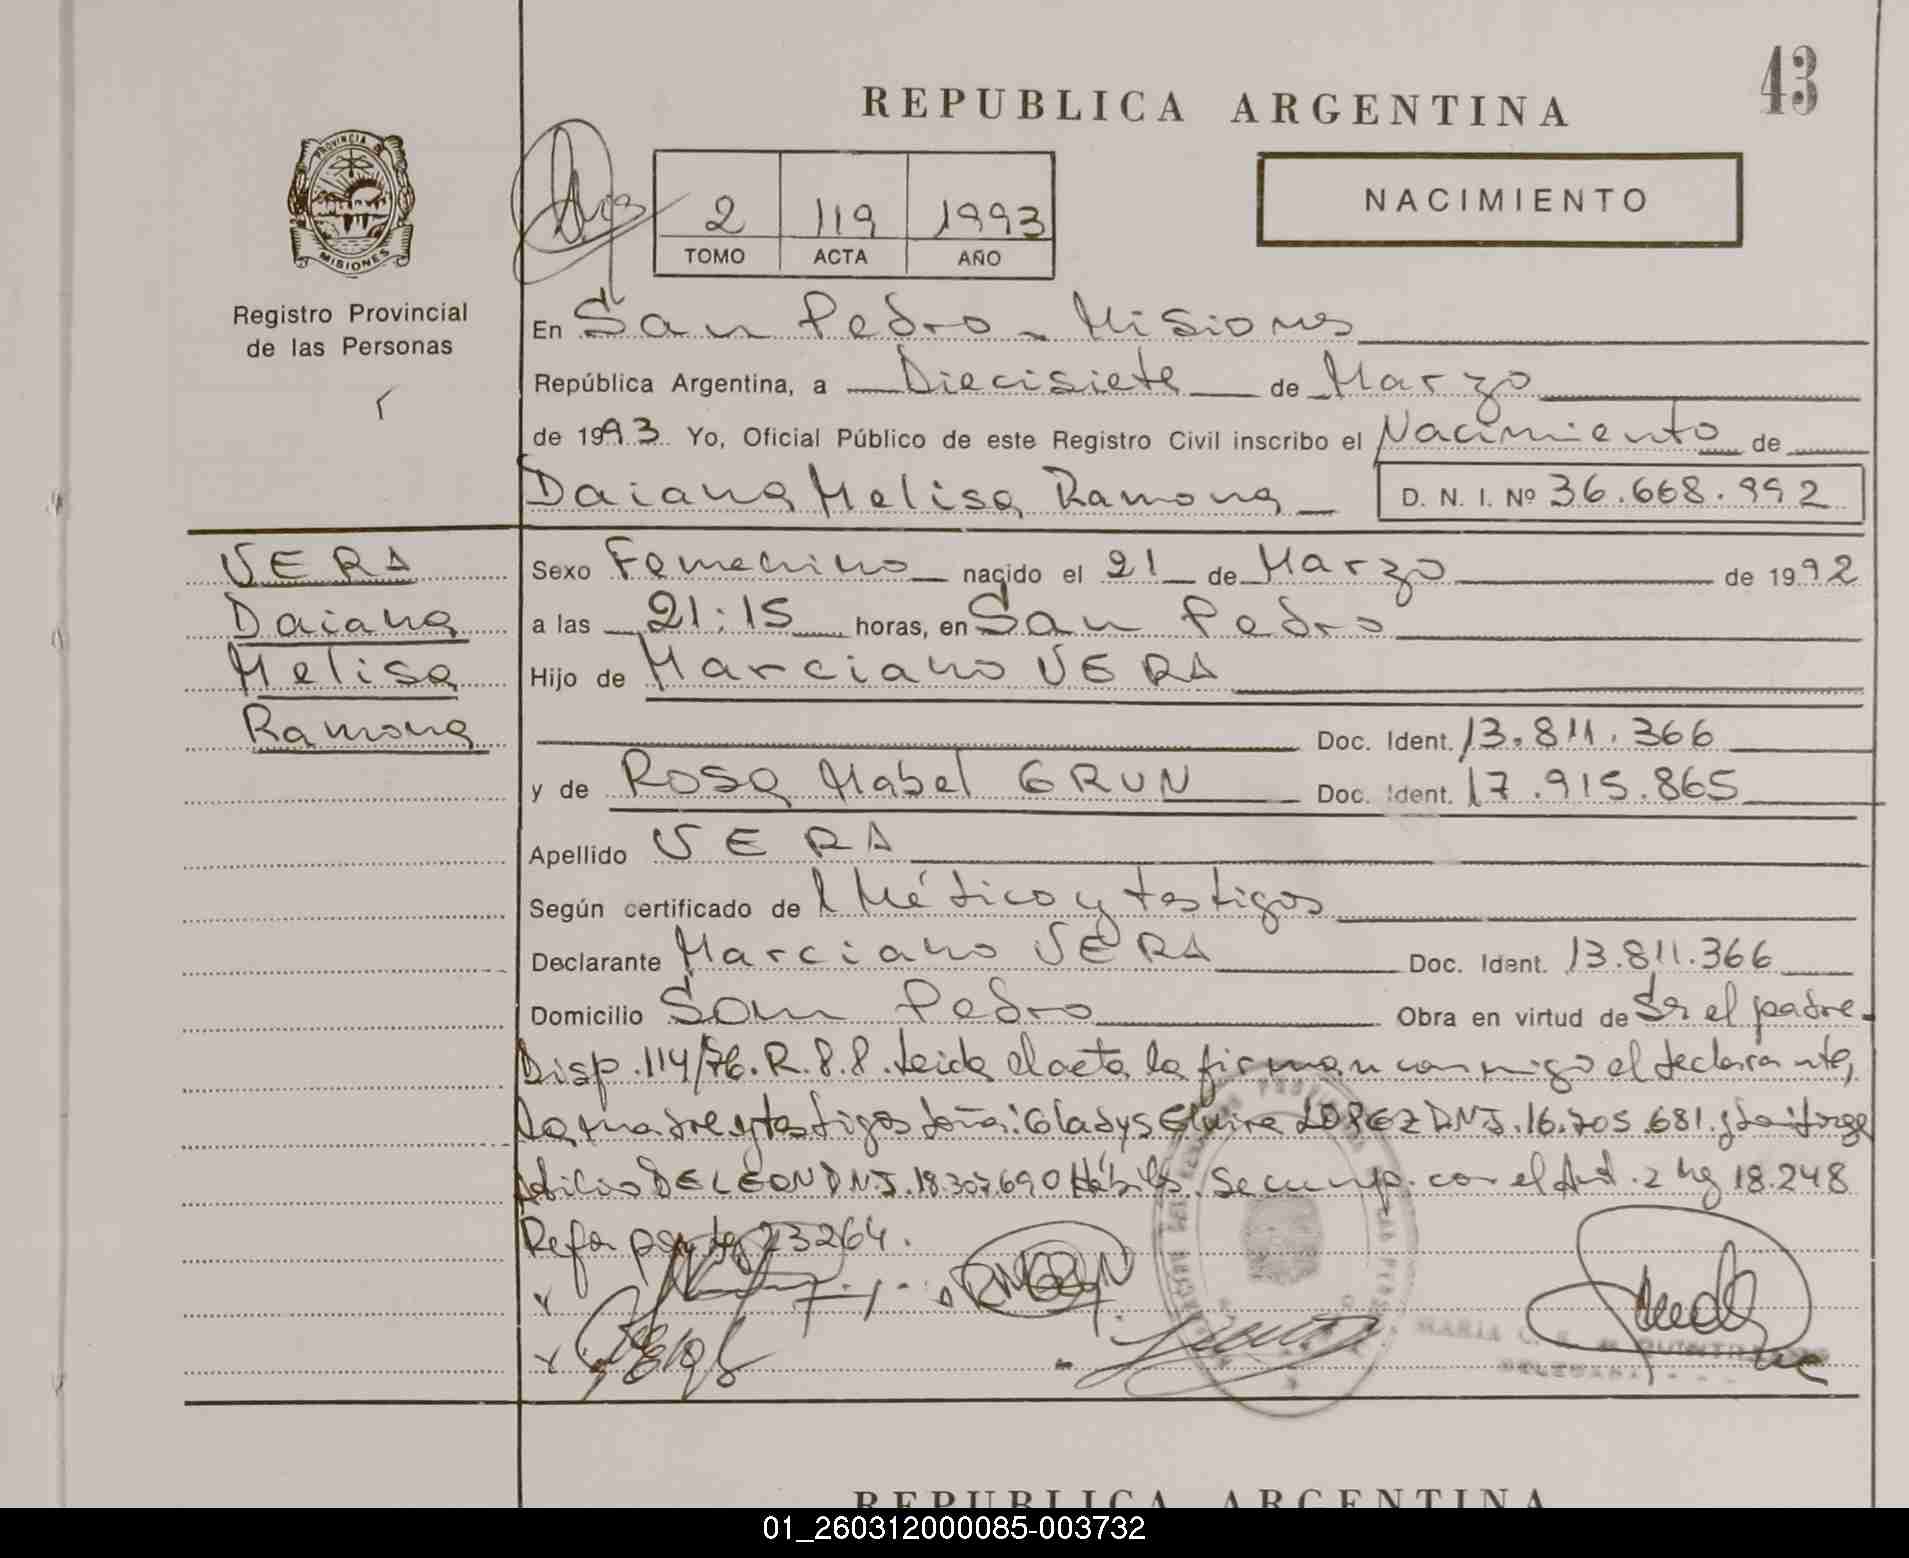 43
REPUBLICA ARGENTINA
NACIMIENTO
2 119 1993
TOMO ACTA AÑO
PROVINCIA DE
MISIONES
Registro Provincial
de las Personas
En San Pedro - Misiones
República Argentina, a Diecisiete de Marzo
de 1993 Yo, Oficial Público de este Registro Civil inscribo el Nacimiento de
Daiana Melisa Ramona D. N. I. Nº 36.668.992
VERA
Daiana
Melisa
Ramona
Sexo Femenino nacido el 21 de Marzo de 1992
a las 21:15 horas, en San Pedro
Hijo de Marciano VERA
Doc. Ident. 13.811.366
y de Rosa Mabel GRUN Doc. Ident. 17.915.865
Apellido VERA
Según certificado de l Médico y testigos
Declarante Marciano VERA Doc. Ident. 13.811.366
Domicilio San Pedro Obra en virtud de Ser el padre-
Disp. 114/76. R. 8.8. Leida el acta la firman conmigo el declarante,
La madre y testigos doña: Gladys Elvira LOPEZ DNI. 16.705.681. y Jorge
DE LEON DNI. 18.307.690 Hábiles. Se cump. con el Art. 2 ley 18.248
Refor por ley 23264.
RMGRUN
MARIA C.
REPUBLICA ARGENTINA
01_260312000085-003732